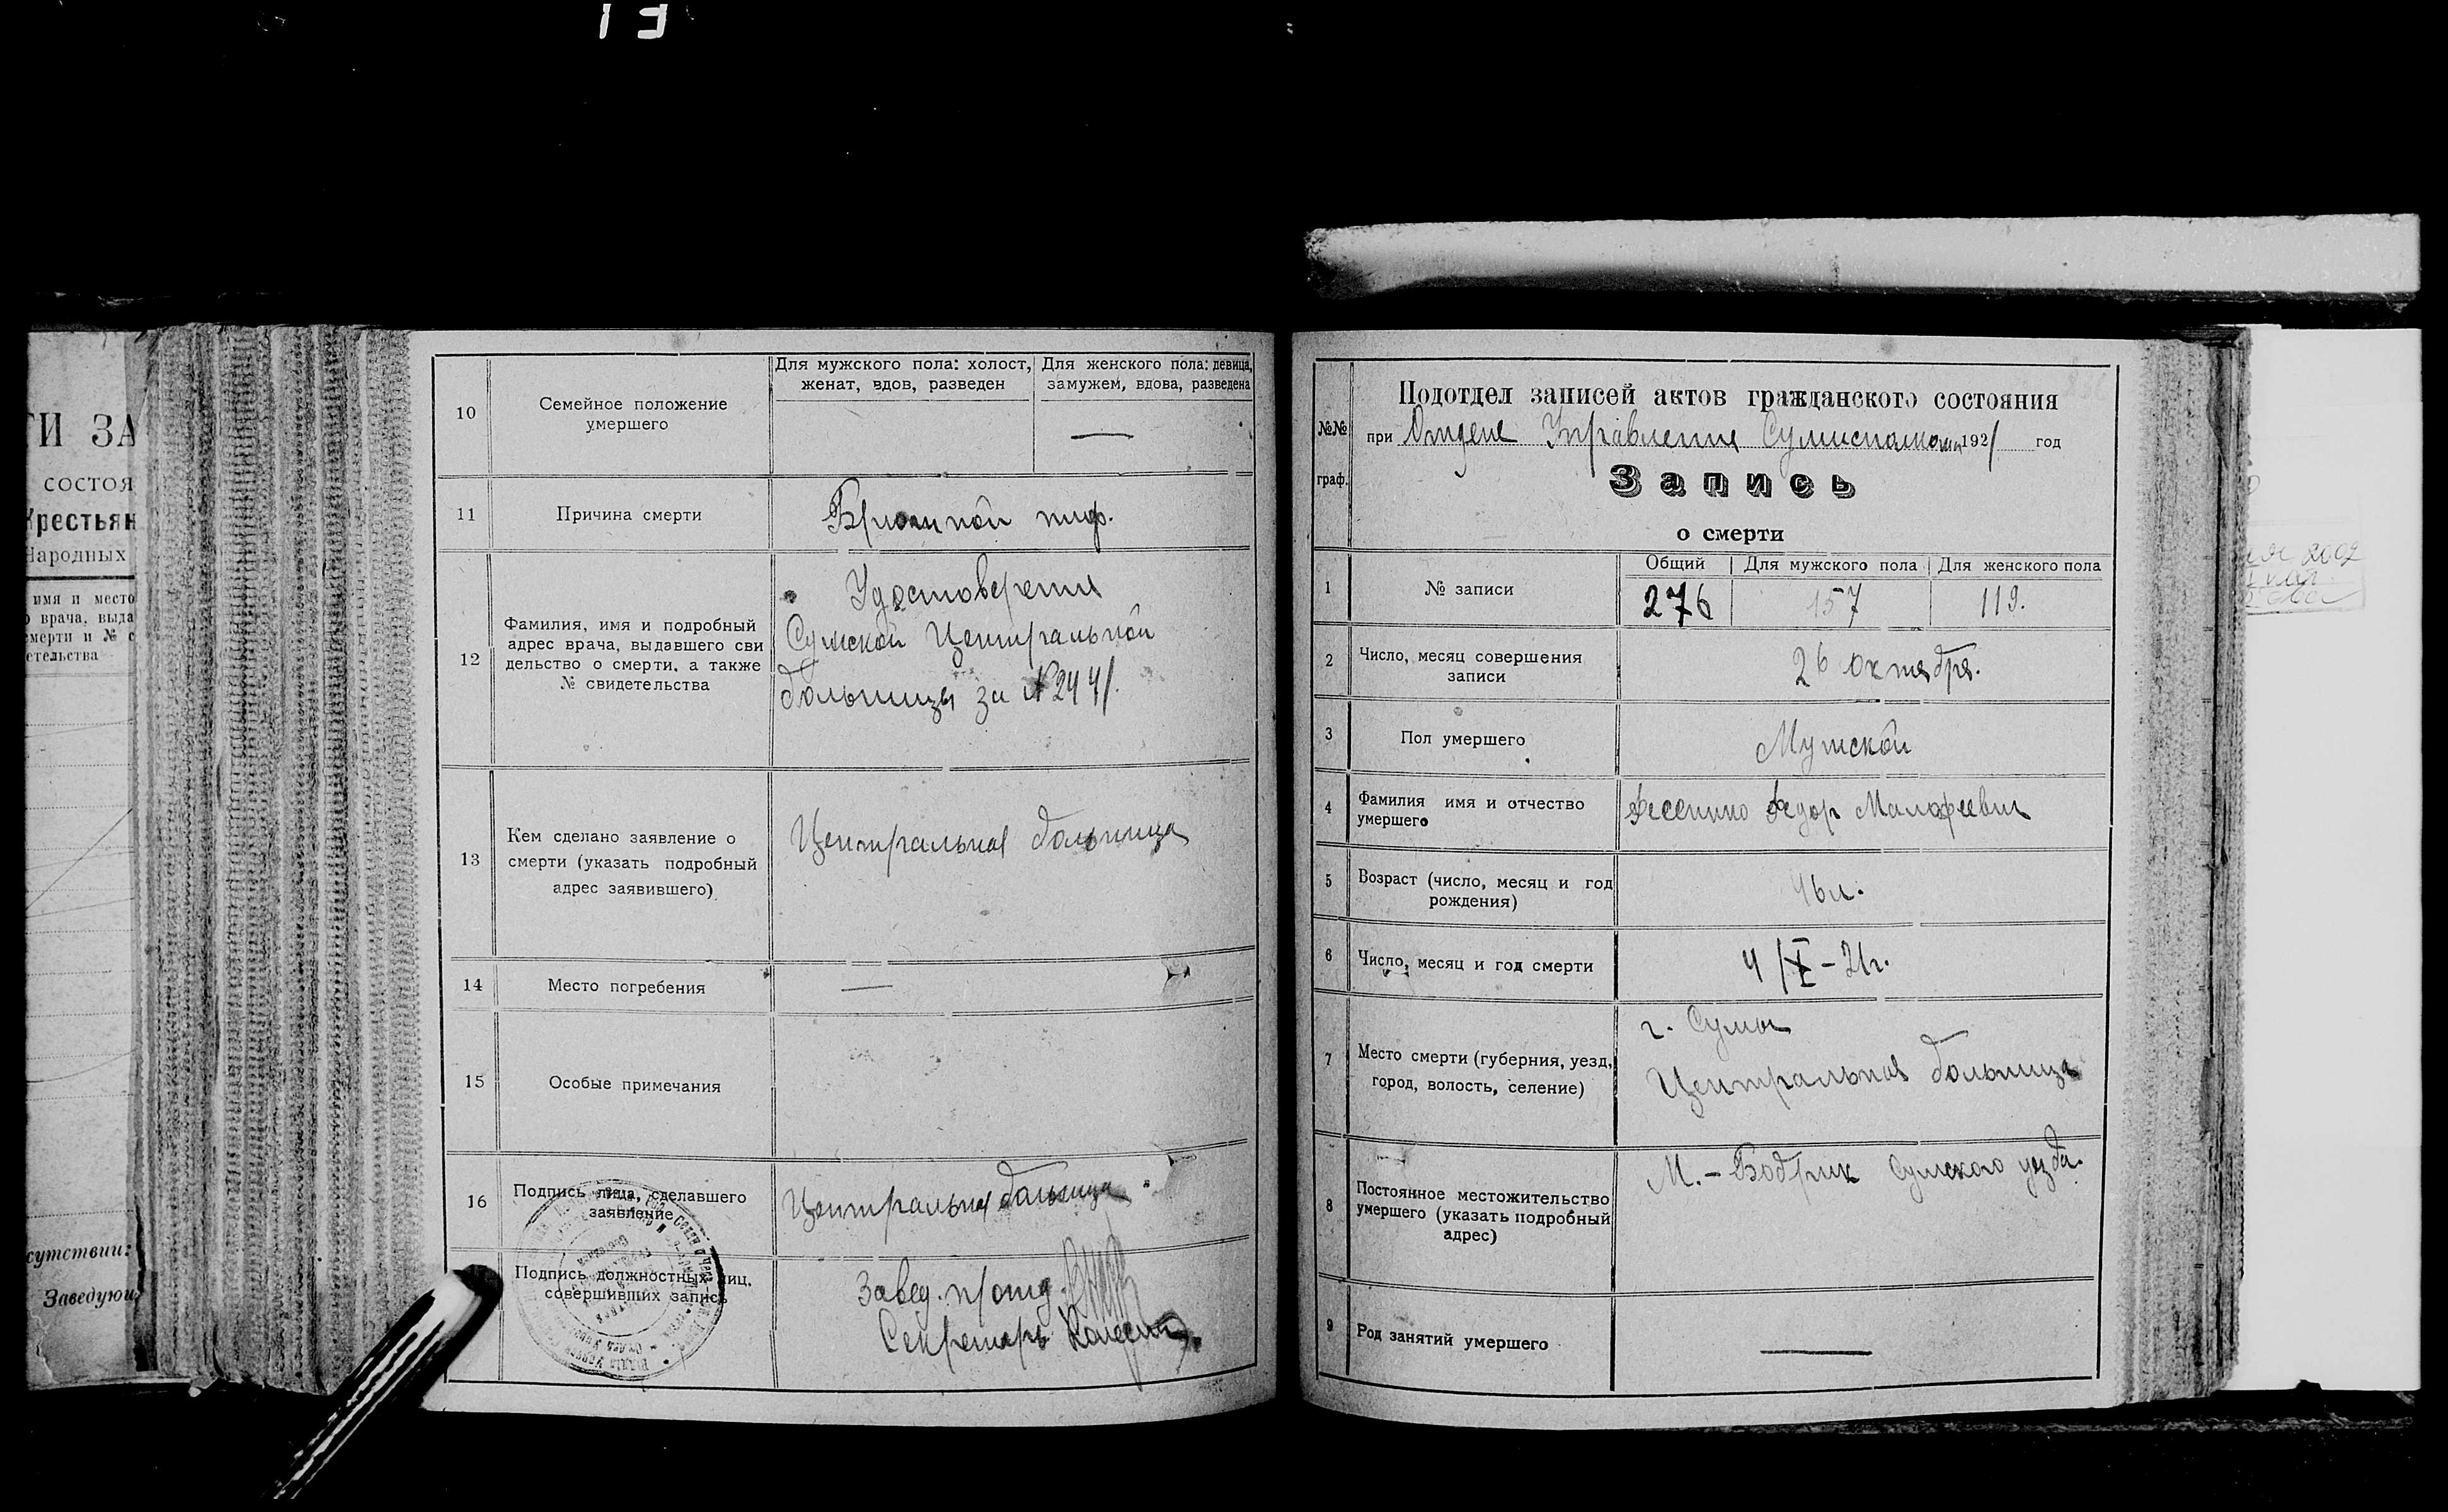 ТИ ЗА
СОСТОЯ
Крестьян
Народных
имя и место
о врача, выда
смерти и № с
етельства
сутствии:
Заведующ
10
Семейное положение
умершего
Для мужского пола: холост,
женат, вдов, разведен
Для женского пола: девица,
замужем, вдова, разведена
—
11
Причина смерти
Брюшной тиф.
12
Фамилия, имя и подробный
адрес врача, выдавшего сви
дельство о смерти, а также
№ свидетельства
Удостоверения
Сумской Центральной
больницы за №2441.
13
Кем сделано заявление о
смерти (указать подробный
адрес заявившего)
Центральная больница
14
Место погребения
—
15
Особые примечания
16
Подпись лица, сделавшего
заявление
Центральная больница
Подпись должностных лиц,
совершивших запись
Завед. п/отд.
Секретарь
№№
граф.
Подотдел записей актов гражданского состояния
при Отделе Управления Сумисполкома 1921 год
Запись
о смерти
1
№ записи
Общий
Для мужского пола
Для женского пола
276
157
119.
2
Число, месяц совершения
записи
26 октября.
3
Пол умершего
Мужской
4
Фамилия имя и отчество
умершего
Фесенко Федор Малафеевич
5
Возраст (число, месяц и год
рождения)
46 л.
6
Число, месяц и год смерти
4/X-21г.
7
Место смерти (губерния, уезд,
город, волость, селение)
г. Сумы
Центральная больница
8
Постоянное местожительство
умершего (указать подробный
адрес)
М.-Бобрик Сумского уезда.
9
Род занятий умершего
—